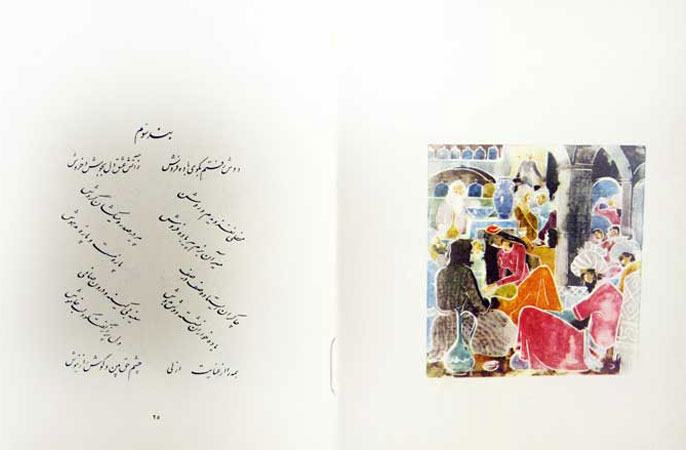 بند سوم
دوش رفتم بکوی باده فروش ز آتش عشق دل بجوش و خروش
محفلی نغز دیدم و روشن
میر آن بزم پیر باده فروش
پیر در صدر و میکشان گردش
پاره مست و پاره مدهوش
چاکران ایستاده صف در صف
باده خواران نشسته دوش بدوش
سینه بی کینه و درون صافی
دل پر از گفتگو و لب خاموش
همه را از عنایت ازلی چشم حق بین و گوش راز نیوش
۲۵